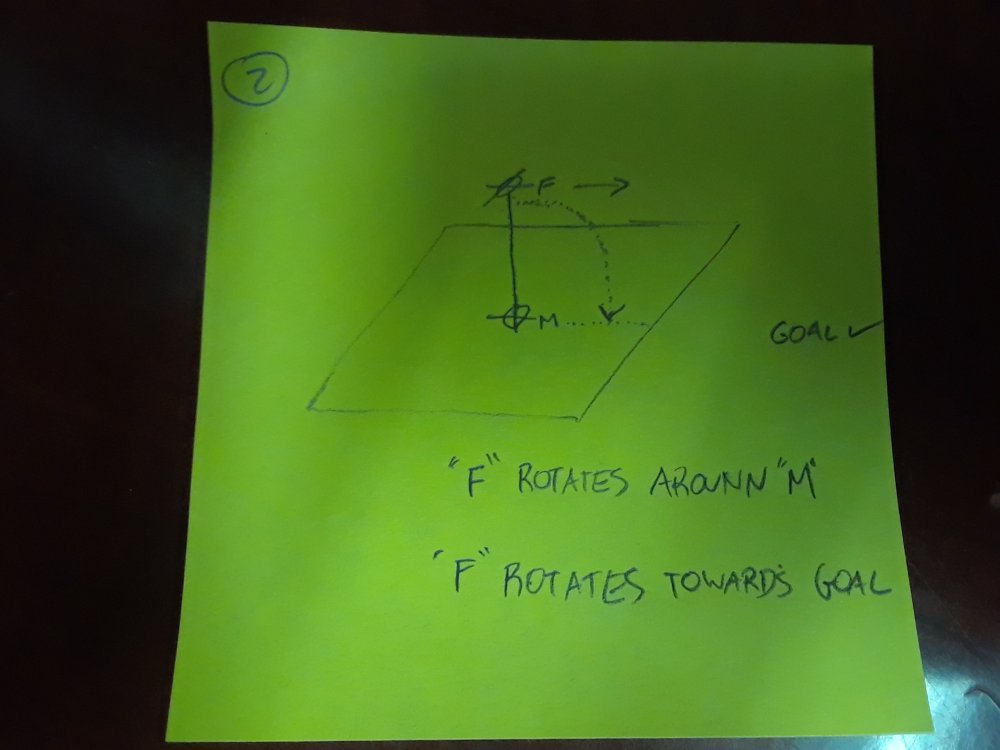 2
F →
M
GOAL ✓
"F" ROTATES AROUNN "M"
"F" ROTATES TOWARDS GOAL